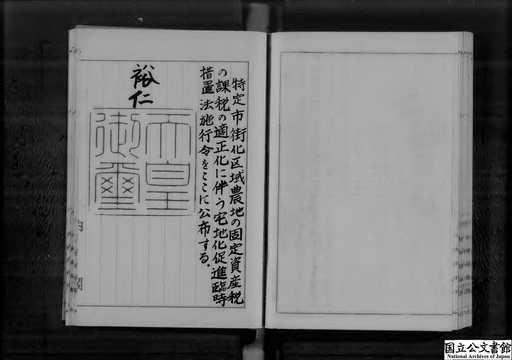 特定市街化区域農地の固定資産税
の課税の適正化に伴う宅地化促進臨時
措置法施行令をここに公布する。
裕仁
天皇
御璽
国立公文書館
National Archives of Japan